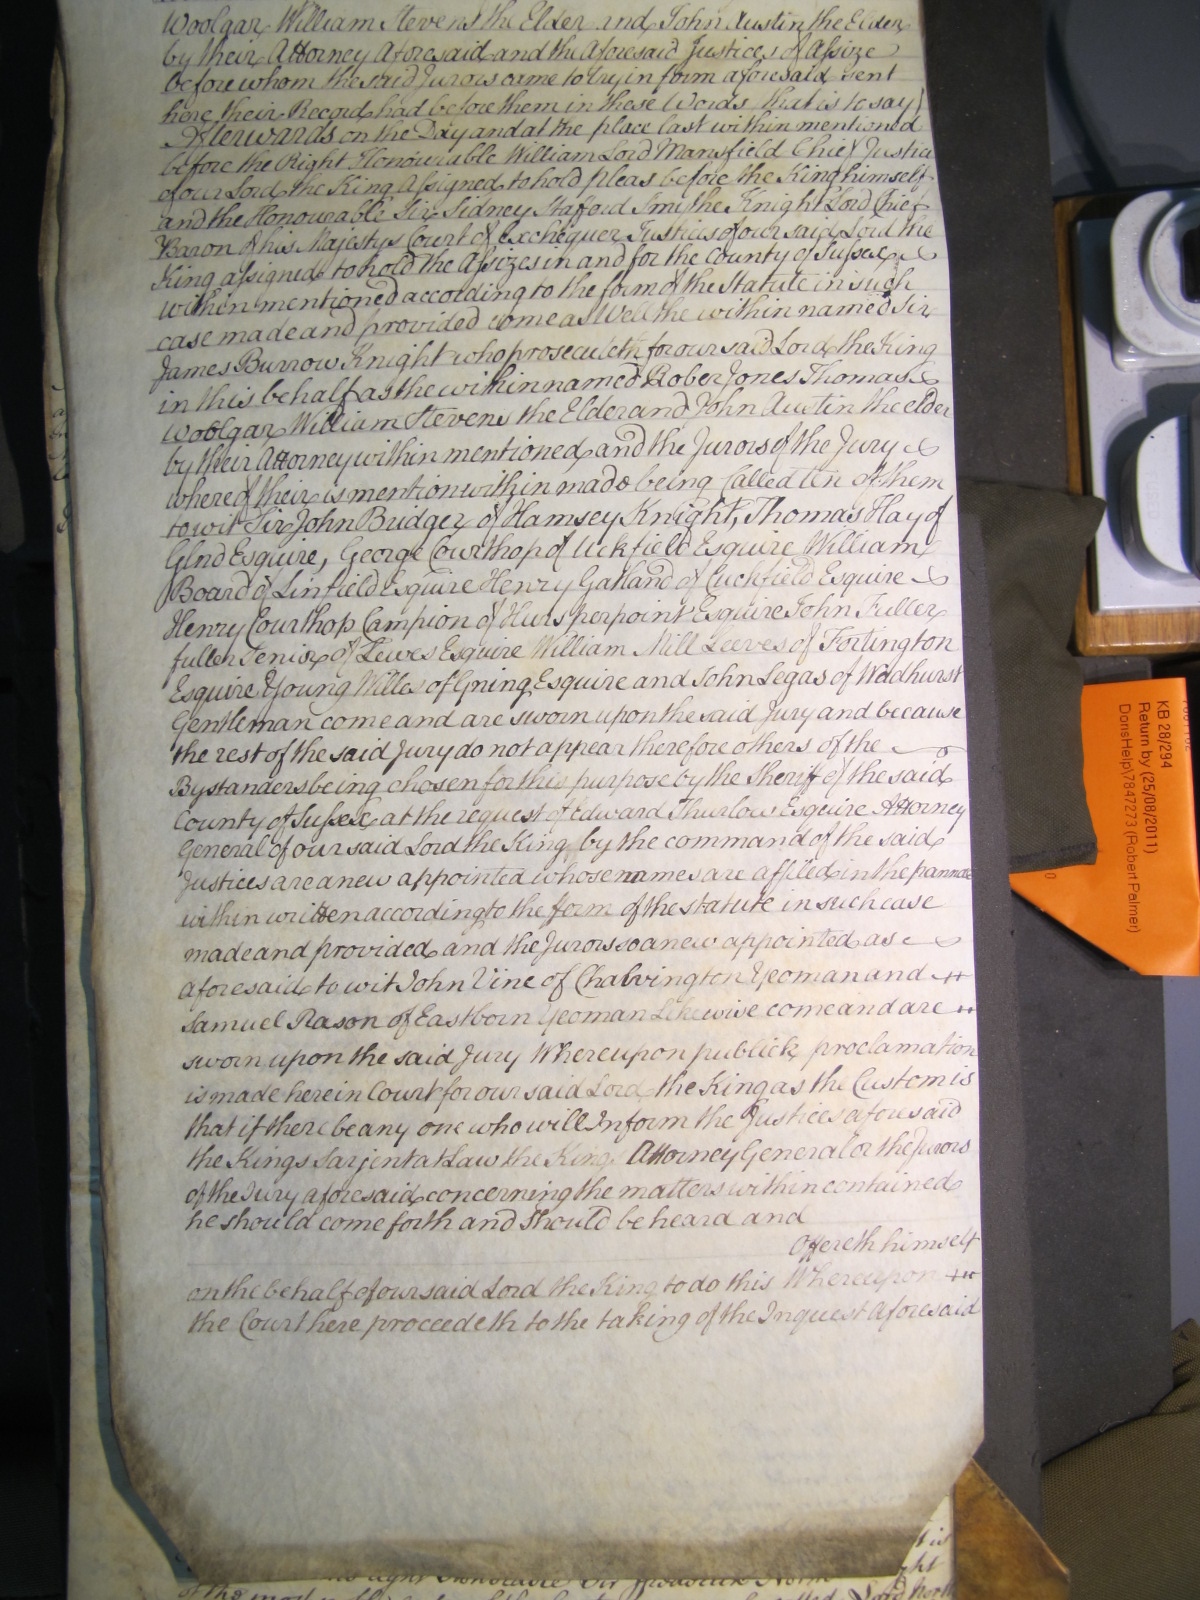 Woolgar William Stevens the Elder and John Austin the Elder
by their Attorney Aforesaid and the aforesaid Justices of Assize
before whom the said Jurors came to try in form aforesaid sent
here their Record had before them in these Words that is to say
Afterwards on the Day and at the place last within mentioned
before the Right Honourable William Lord Mansfield Chief Justice
of our Lord the King Assigned to hold pleas before the King himself
and the Honourable Sir Sidney Staford Smythe Knight Lord Chief
Baron of his Majestys Court of Exchequer Justices of our said Lord the
King assigned to hold the Assizes in and for the County of Sussex
within mentioned according to the form of the Statute in such
case made and provided come as Well the within named Sir
James Burrow Knight who prosecuteth for our said Lord the King
in this behalf as the within named Rober Jones Thomas
Woolgar William Stevens the Elder and John Austin the elder
by their Attorney within mentioned and the Jurors of the Jury
whereof their is mention within made being Called ten of them
to wit Sir John Bridger of Hamsey Knight, Thomas Hay of
Glnd Esquire, George Courthop of Uckfield Esquire William
Board of Linfield Esquire Henry Gatland of Cuckfield Esquire
Henry Courthop Campion of Hursperpoint Esquire John Fuller
fuller Senior of Lewes Esquire William Mill Leeves of Tortington
Esquire Young Willes of Gring Esquire and John Legas of Wadhurst
Gentleman come and are sworn upon the said Jury and because
the rest of the said Jury do not appear therefore others of the
Bystanders being chosen for this purpose by the Sheriff of the said
County of Sussex at the request of Edward Thurlow Esquire Attorney
General of our said Lord the King by the command of the said
Justices are anew appointed whose names are affiled in the pannel
within written according to the form of the statute in such case
made and provided and the Jurors so anew appointed as
aforesaid to wit John Vine of Chalvington Yeoman and
Samuel Rason of Eastborn Yeoman Likewise come and are
sworn upon the said Jury Whereupon publick proclamation
is made here in Court for our said Lord the King as the Custom is
that if there be any one who will Inform the Justices aforesaid
the Kings Sarjent at Law the Kings Attorney General or the Jurors
of the Jury aforesaid concerning the matters within contained
he should come forth and should be heard and
Offereth himself
on the behalf of our said Lord the King to do this Whereupon
the Court here proceedeth to the taking of the Inquest Aforesaid
KB 28/294
Return by (25/08/2011)
DorisHelp\7847273 (Robert Palmer)